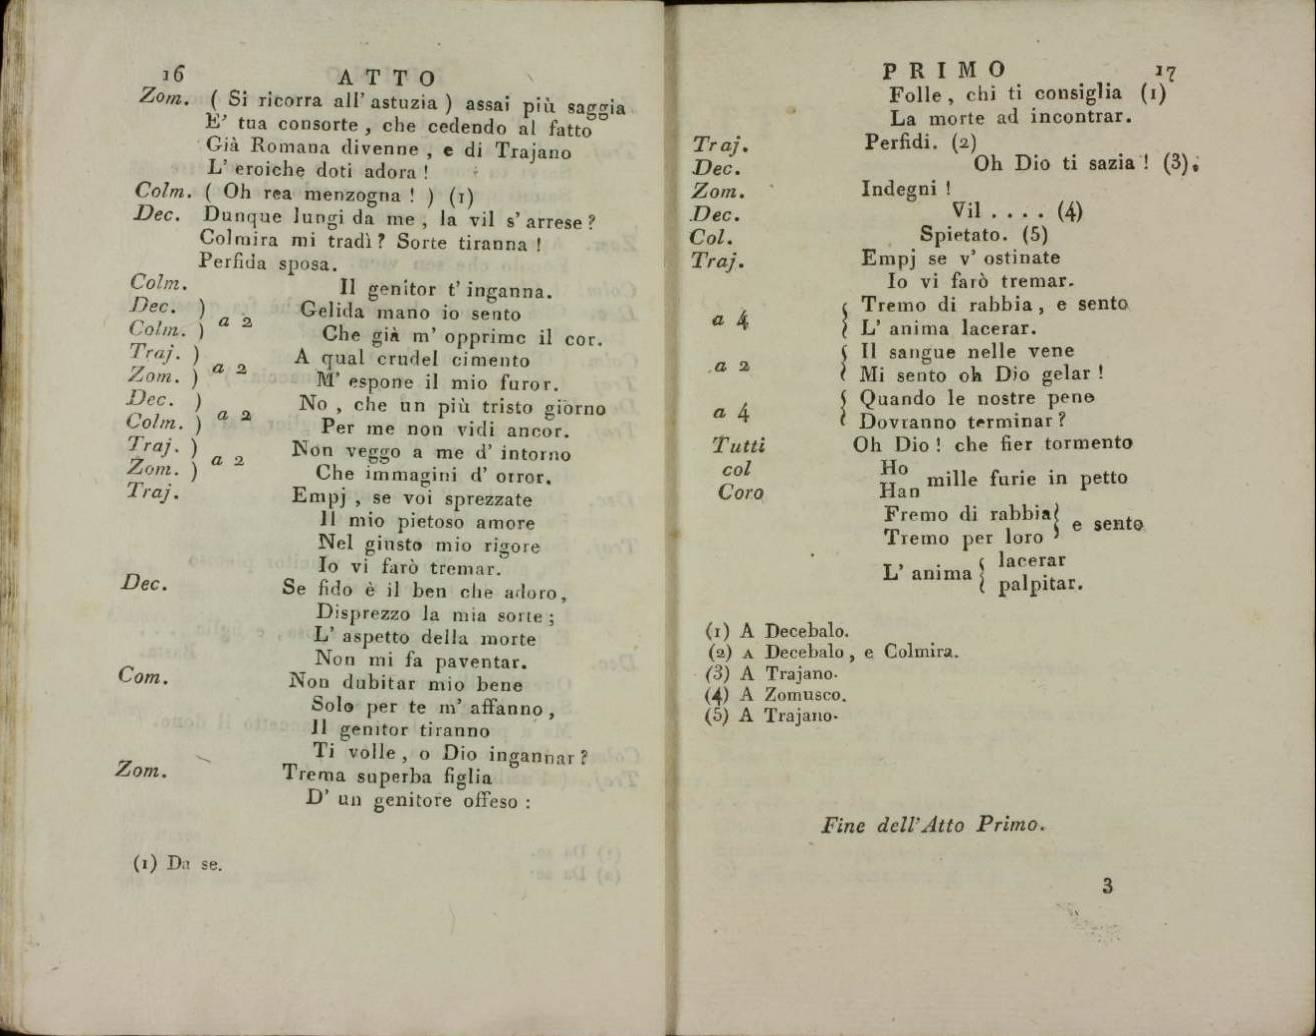 16 ATTO
Zom. ( Si ricorra all' astuzia ) assai più saggia
E' tua consorte , che cedendo al fatto
Già Romana divenne , e di Trajano
L' eroiche doti adora !
Colm. ( Oh rea menzogna ! ) (1)
Dec. Dunque lungi da me , la vil s' arrese ?
Colmira mi tradì ? Sorte tiranna !
Perfida sposa.
Colm. Il genitor t' inganna.
Dec. ) Gelida mano io sento
Colm. ) a 2 Che già m' opprime il cor.
Traj. ) A qual crudel cimento
Zom. ) a 2 M' espone il mio furor.
Dec. ) No , che un più tristo giorno
Colm. ) a 2 Per me non vidi ancor.
Traj. ) Non veggo a me d' intorno
Zom. ) a 2 Che immagini d' orror.
Traj. Empj , se voi sprezzate
Il mio pietoso amore
Nel giusto mio rigore
Io vi farò tremar.
Dec. Se fido è il ben che adoro ,
Disprezzo la mia sorte ;
L' aspetto della morte
Non mi fa paventar.
Com. Non dubitar mio bene
Solo per te m' affanno ,
Il genitor tiranno
Ti volle , o Dio ingannar ?
Zom. Trema superba figlia
D' un genitore offeso :
(1) Da se.
PRIMO 17
Folle , chi ti consiglia (1)
La morte ad incontrar.
Traj. Perfidi. (2)
Dec. Oh Dio ti sazia ! (3).
Zom. Indegni !
Dec. Vil .... (4)
Col. Spietato. (5)
Traj. Empj se v' ostinate
Io vi farò tremar.
a 4 { Tremo di rabbia , e sento
L' anima lacerar.
a 2 { Il sangue nelle vene
Mi sento oh Dio gelar !
a 4 { Quando le nostre pene
Dovranno terminar ?
Tutti Oh Dio ! che fier tormento
col Ho
mille furie in petto
Coro Han
Fremo di rabbia }
e sento
Tremo per loro
L' anima { lacerar
palpitar.
(1) A Decebalo.
(2) A Decebalo , e Colmira.
(3) A Trajano.
(4) A Zomusco.
(5) A Trajano.
Fine dell'Atto Primo.
3